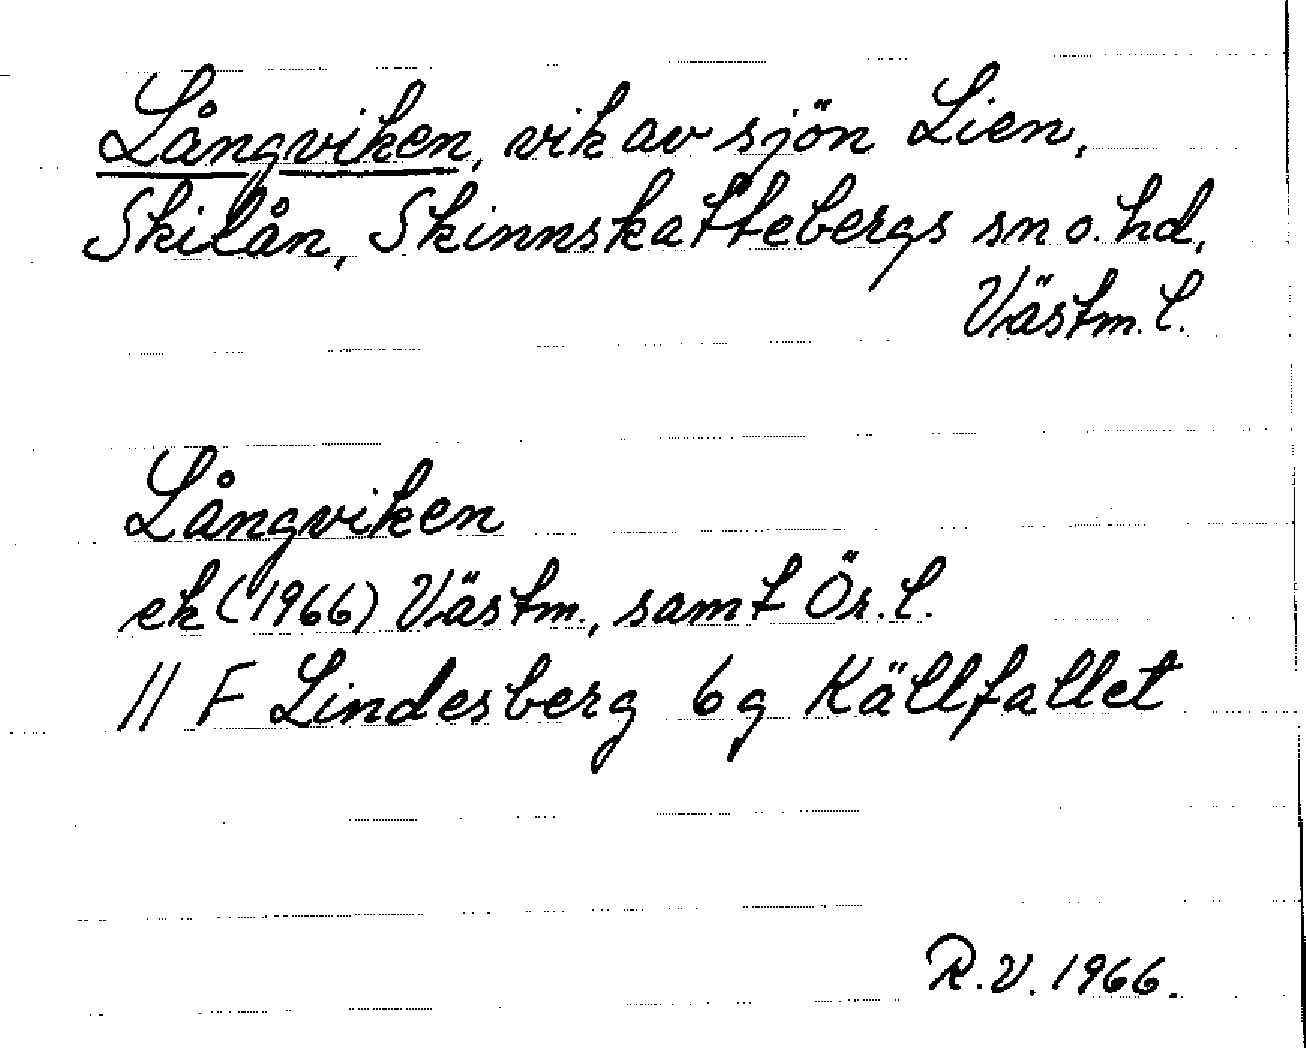 Långviken, vik av sjön Lien,
Skilån, Skinnskattebergs sn o. hd,
Västm. l.
Långviken
ek (1966) Västm., samt Ör. l.
11 F Lindesberg 6g Källfallet
R.V. 1966.